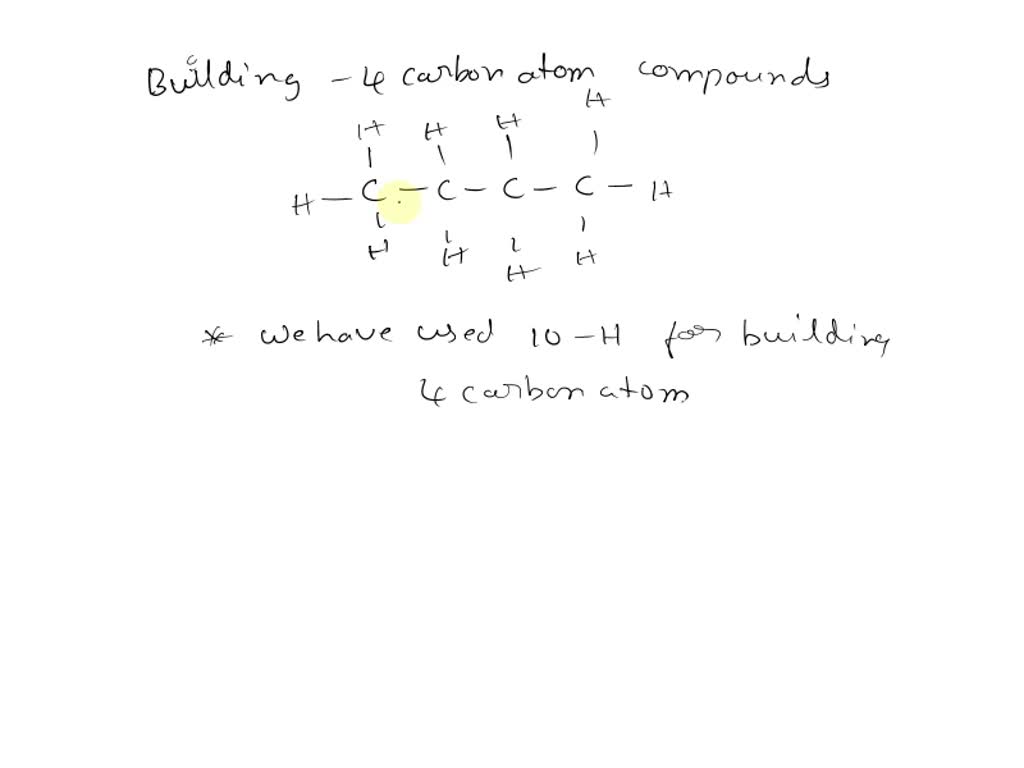 Building - 4 carbon atom compounds
H H H H
H - C - C - C - C - H
H H H H
* we have used 10 - H for building
4 carbon atom